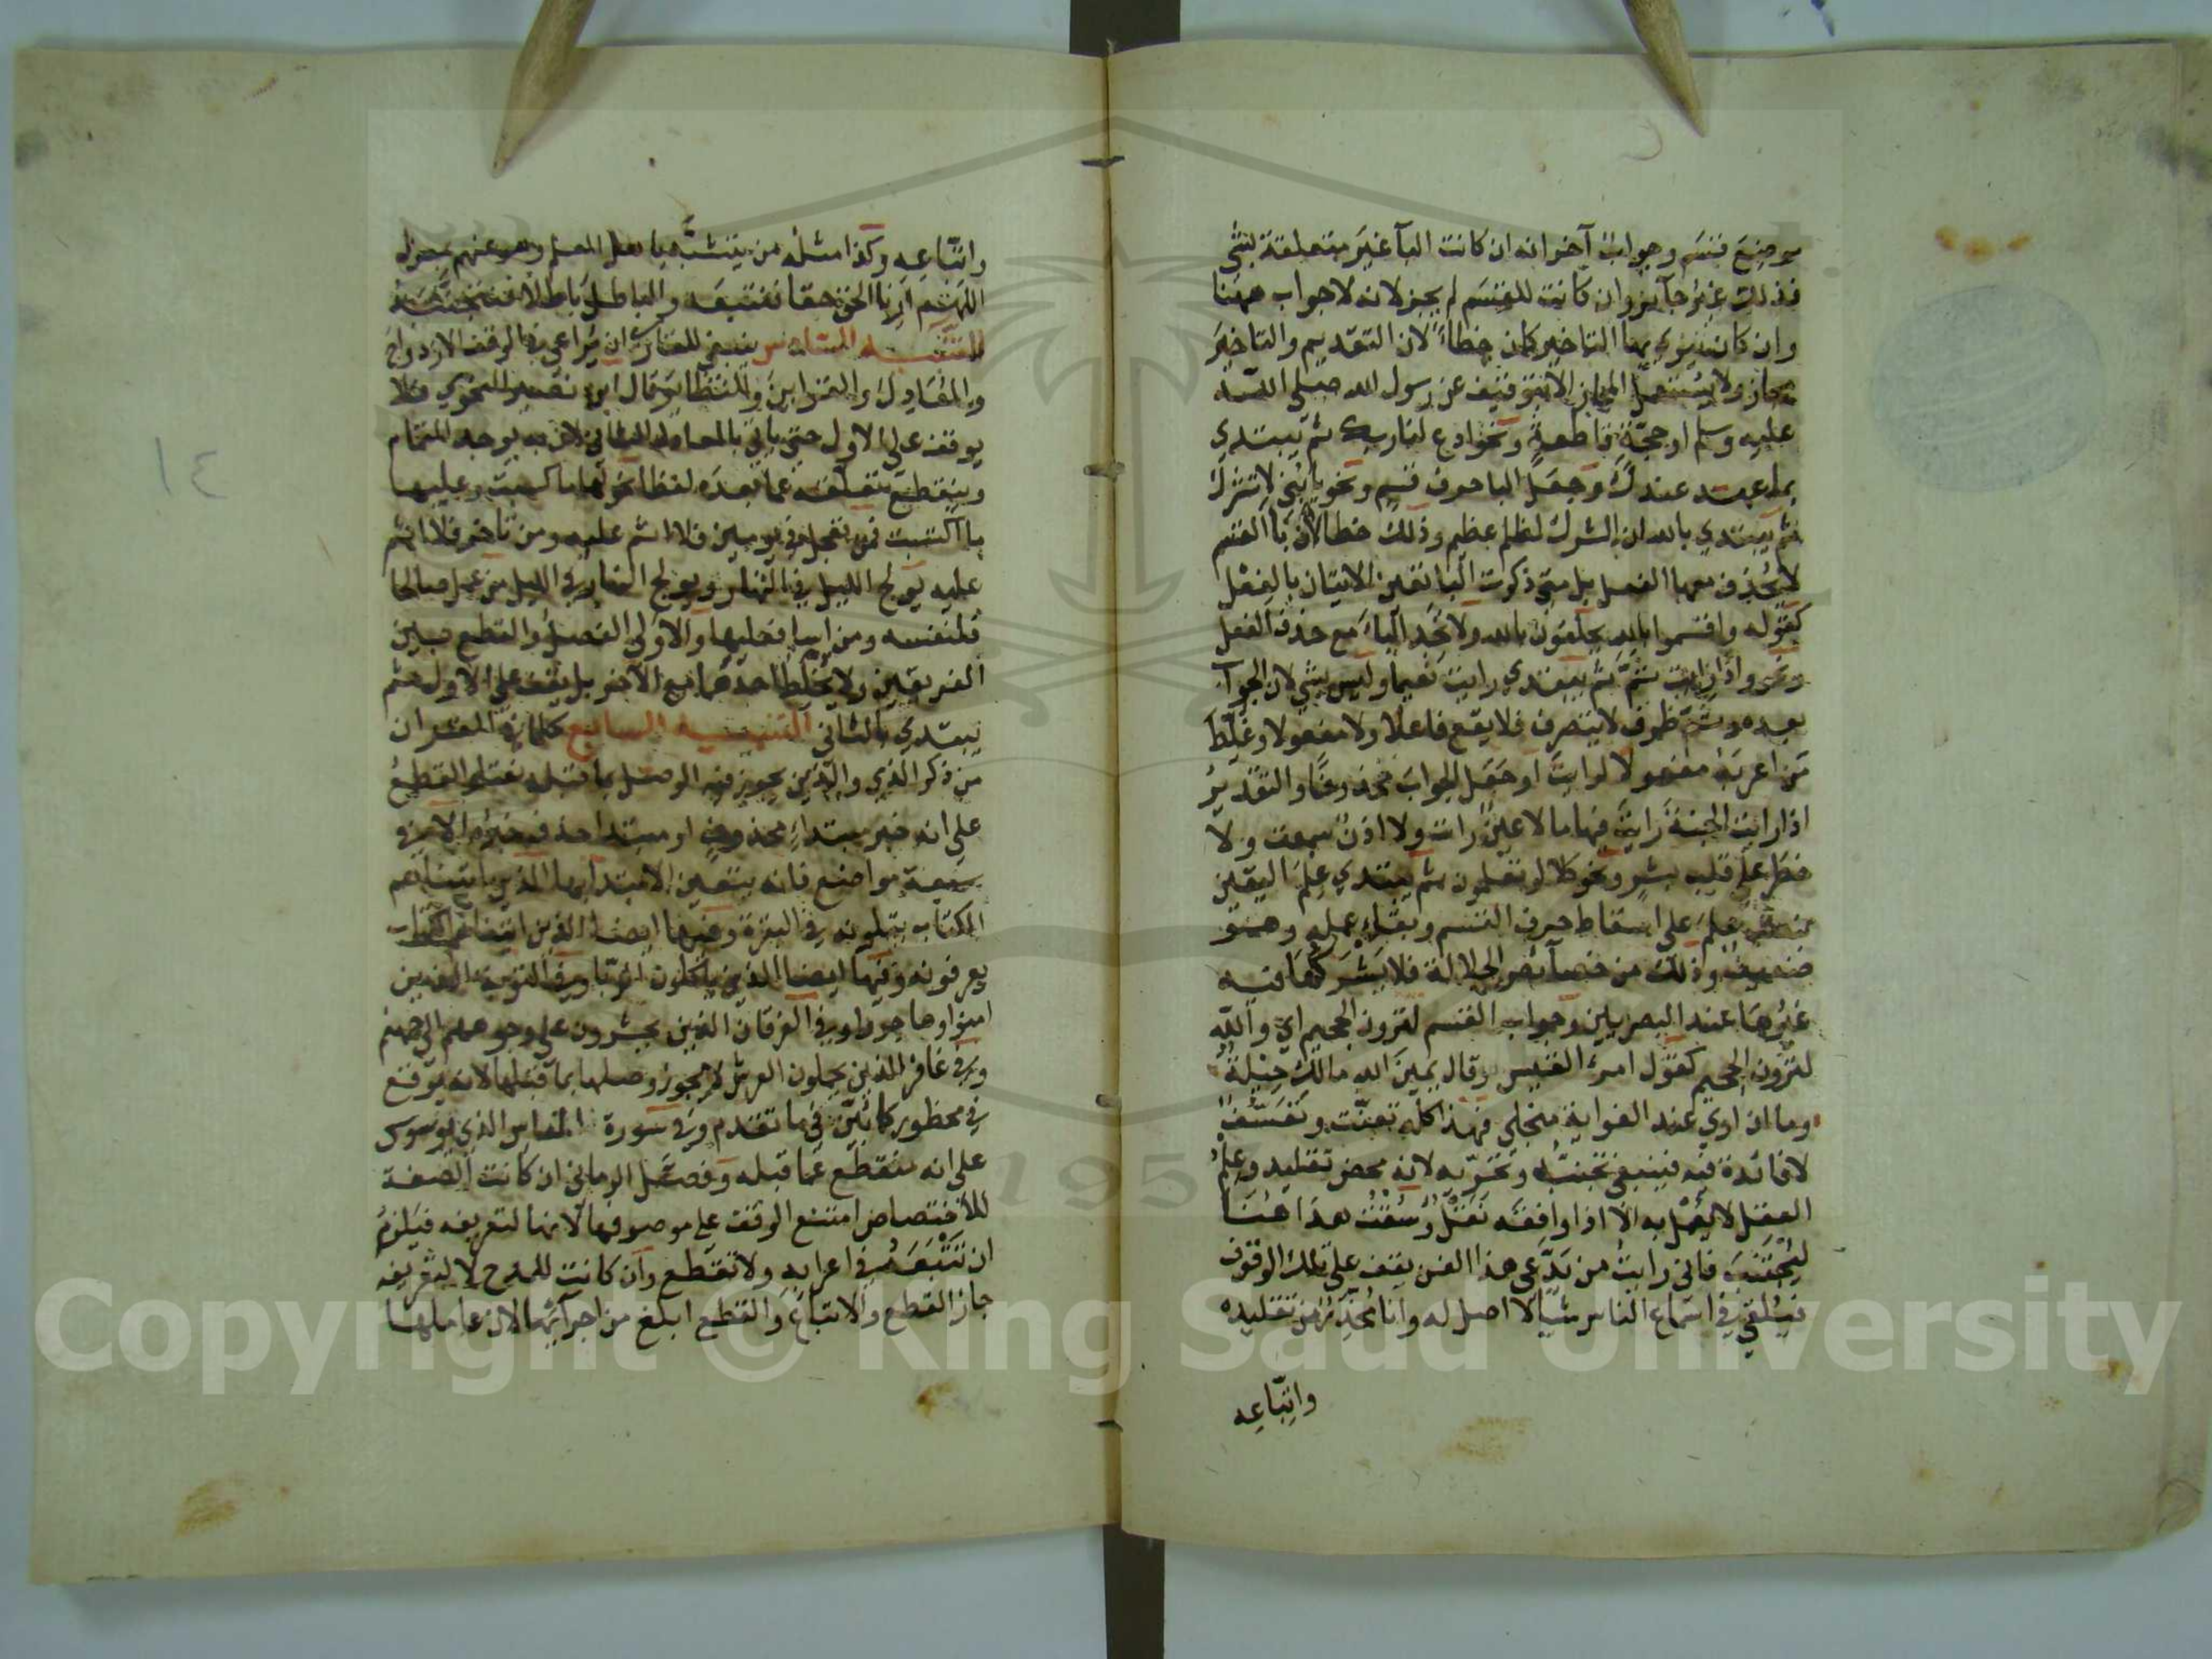 موضع قسم وجواب آخر انه ان كانت الباء غير متعلقة بشي
فذلك غير جآيز وان كانت للقسم لم يجز لانه لا جواب ههنا
وان كان ينوي بها التاخير كان خطاءً لان التقديم والتاخير
مجاز ولا يستعمل المجاز الا بتوقيف عن رسول الله صلى الله
عليه وسلم او حجة قاطعة ونحو ادع لنا ربك ثم يبتدي
بما عهد عندك وجعل البا حرف قسم ونحو يا بني لا تشرك
ثم يبتدي بالله ان الشرك لظلم عظيم وذلك خطا لان با القسم
لا يحذف معها الفعل بل متى ذكرت البا تعين الاتيان بالفعل
كقوله واقسموا بالله يحلفون بالله ولا تجد الباء مع حذف الفعل
ونحو واذا رايت ثم ثم يبتدي رايت نعيما وليس بشي لان الجواب
بعده وثم ظرف لا يتصرف فلا يقع فاعلا ولا مفعولا وغلط
من اعربه مفعولا لرايت او جعل الجواب محذوفا والتقدير
اذا رايت الجنة رايت فيها ما لا عين رات ولا اذن سمعت ولا
خطر على قلب بشر ونحو كلا لو تعلمون ثم يبتدي علم اليقين
بنصب علم على اسقاط حرف القسم وبقاء عمله وهو
ضعيف وذلك من خصآئص الجلالة فلا يشركها فيه
غيرها عند البصريين وجواب القسم لترون الجحيم اي والله
لترون الجحيم كقول امرء القيس وقال يمين الله مالك حيلة
وما ان اري عند الغواية منجلي فهذا كله تعنت وتعسف
لا فائدة فيه فينبغي تجنبه وتحريه لانه محض تقليد وعلم
العقل لا يعمل به الا اذا وافقه نقل وسقت هذا هنا
ليجتنب فاني رايت من يدعي هذا الفن يقف على تلك الوقوف
فيلقي في اسماع الناس شيا لا اصل له وانا محذر من تقليده
واتباعه
واتباعه وكذا مثله من يتشبه باهل العلم وهو عنهم بمعزل
اللهم ارنا الحق حقا فنتبعه والباطل باطلا فنجتنبه
التنبيه السادس ينبغي للقارئ ان يراعي في الوقف الازدواج
والمعادل والقراين والنظاير قال ابن نصير النحوي فلا
يوقف على الاول حتى ياتي بالمعادل الثاني لان به يوجد التمام
وينقطع تعلقه عما بعده لفظا نحو لها ما كسبت وعليها
ما اكتسبت فمن تعجل في يومين فلا اثم عليه ومن تاخر فلا اثم
عليه يولج الليل في النهار ويولج النهار في الليل من عمل صالحا
فلنفسه ومن اسا فعليها والاولى الفصل والقطع بين
الفريقين ولا يخلط احدهما مع الآخر بل يقف على الاول ثم
يبتدي بالثاني التنبيه السابع كلما في القران
من ذكر الذي والذين يجوز فيه الوصل بما قبله نعتا والقطع
على انه خبر مبتداء محذوف او مبتدا حذف خبره الا في
سبعة مواضع فانه يتعين الابتدا بها الذين اتيناهم
الكتاب يتلونه في البقرة وفيها ايضا الذين اتيناهم الكتاب
يعرفونه وفيها ايضا الذين ياكلون الربا وفي التوبة الذين
امنوا وهاجروا وفي الفرقان الذين يحشرون على وجوههم الى جهنم
وفي غافر الذين يحملون العرش لا يجوز وصلها بما قبلها لانه يوقع
في محظور كما بين في ما تقدم وفي سورة الناس الذي يوسوس
على انه منقطع عما قبله وفصل الرماني ان كانت الصفة
للاختصاص امتنع الوقف على موصوفها لانها لتعريفه فيلزم
ان تتبعه في اعرابه ولا تقطع وان كانت للمدح لا لتعريفه
جاز القطع والاتباع والقطع ابلغ من اجرآئها لان عاملها
١٤
Copyright © King Saud University
195